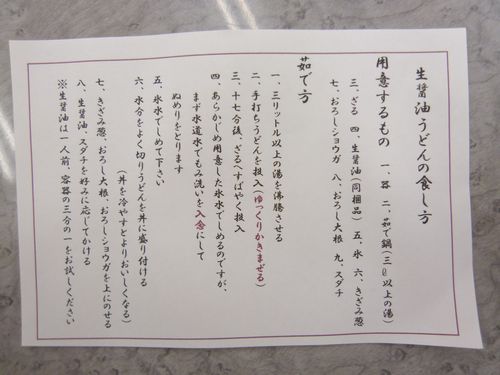 生醤油うどんの食し方
用意するもの 一、器 二、茹で鍋(三ℓ以上の湯)
三、ざる 四、生醤油(同梱品) 五、氷 六、きざみ葱
七、おろしショウガ 八、おろし大根 九、スダチ
茹で方
一、三リットル以上の湯を沸騰させる
二、手打ちうどんを投入(ゆっくりかきまぜる)
三、十七分後、ざるへすばやく投入
四、あらかじめ用意した氷水でしめるのですが、
まず水道水でもみ洗いを入念にして
ぬめりをとります
五、氷水でしめて下さい
六、水分をよく切りうどんを丼に盛り付ける
(丼を冷やすとよりおいしくなる)
七、きざみ葱、おろし大根、おろしショウガを上にのせる
八、生醤油、スダチを好みに応じてかける
※生醤油は一人前 容器の三分の一をお試しください